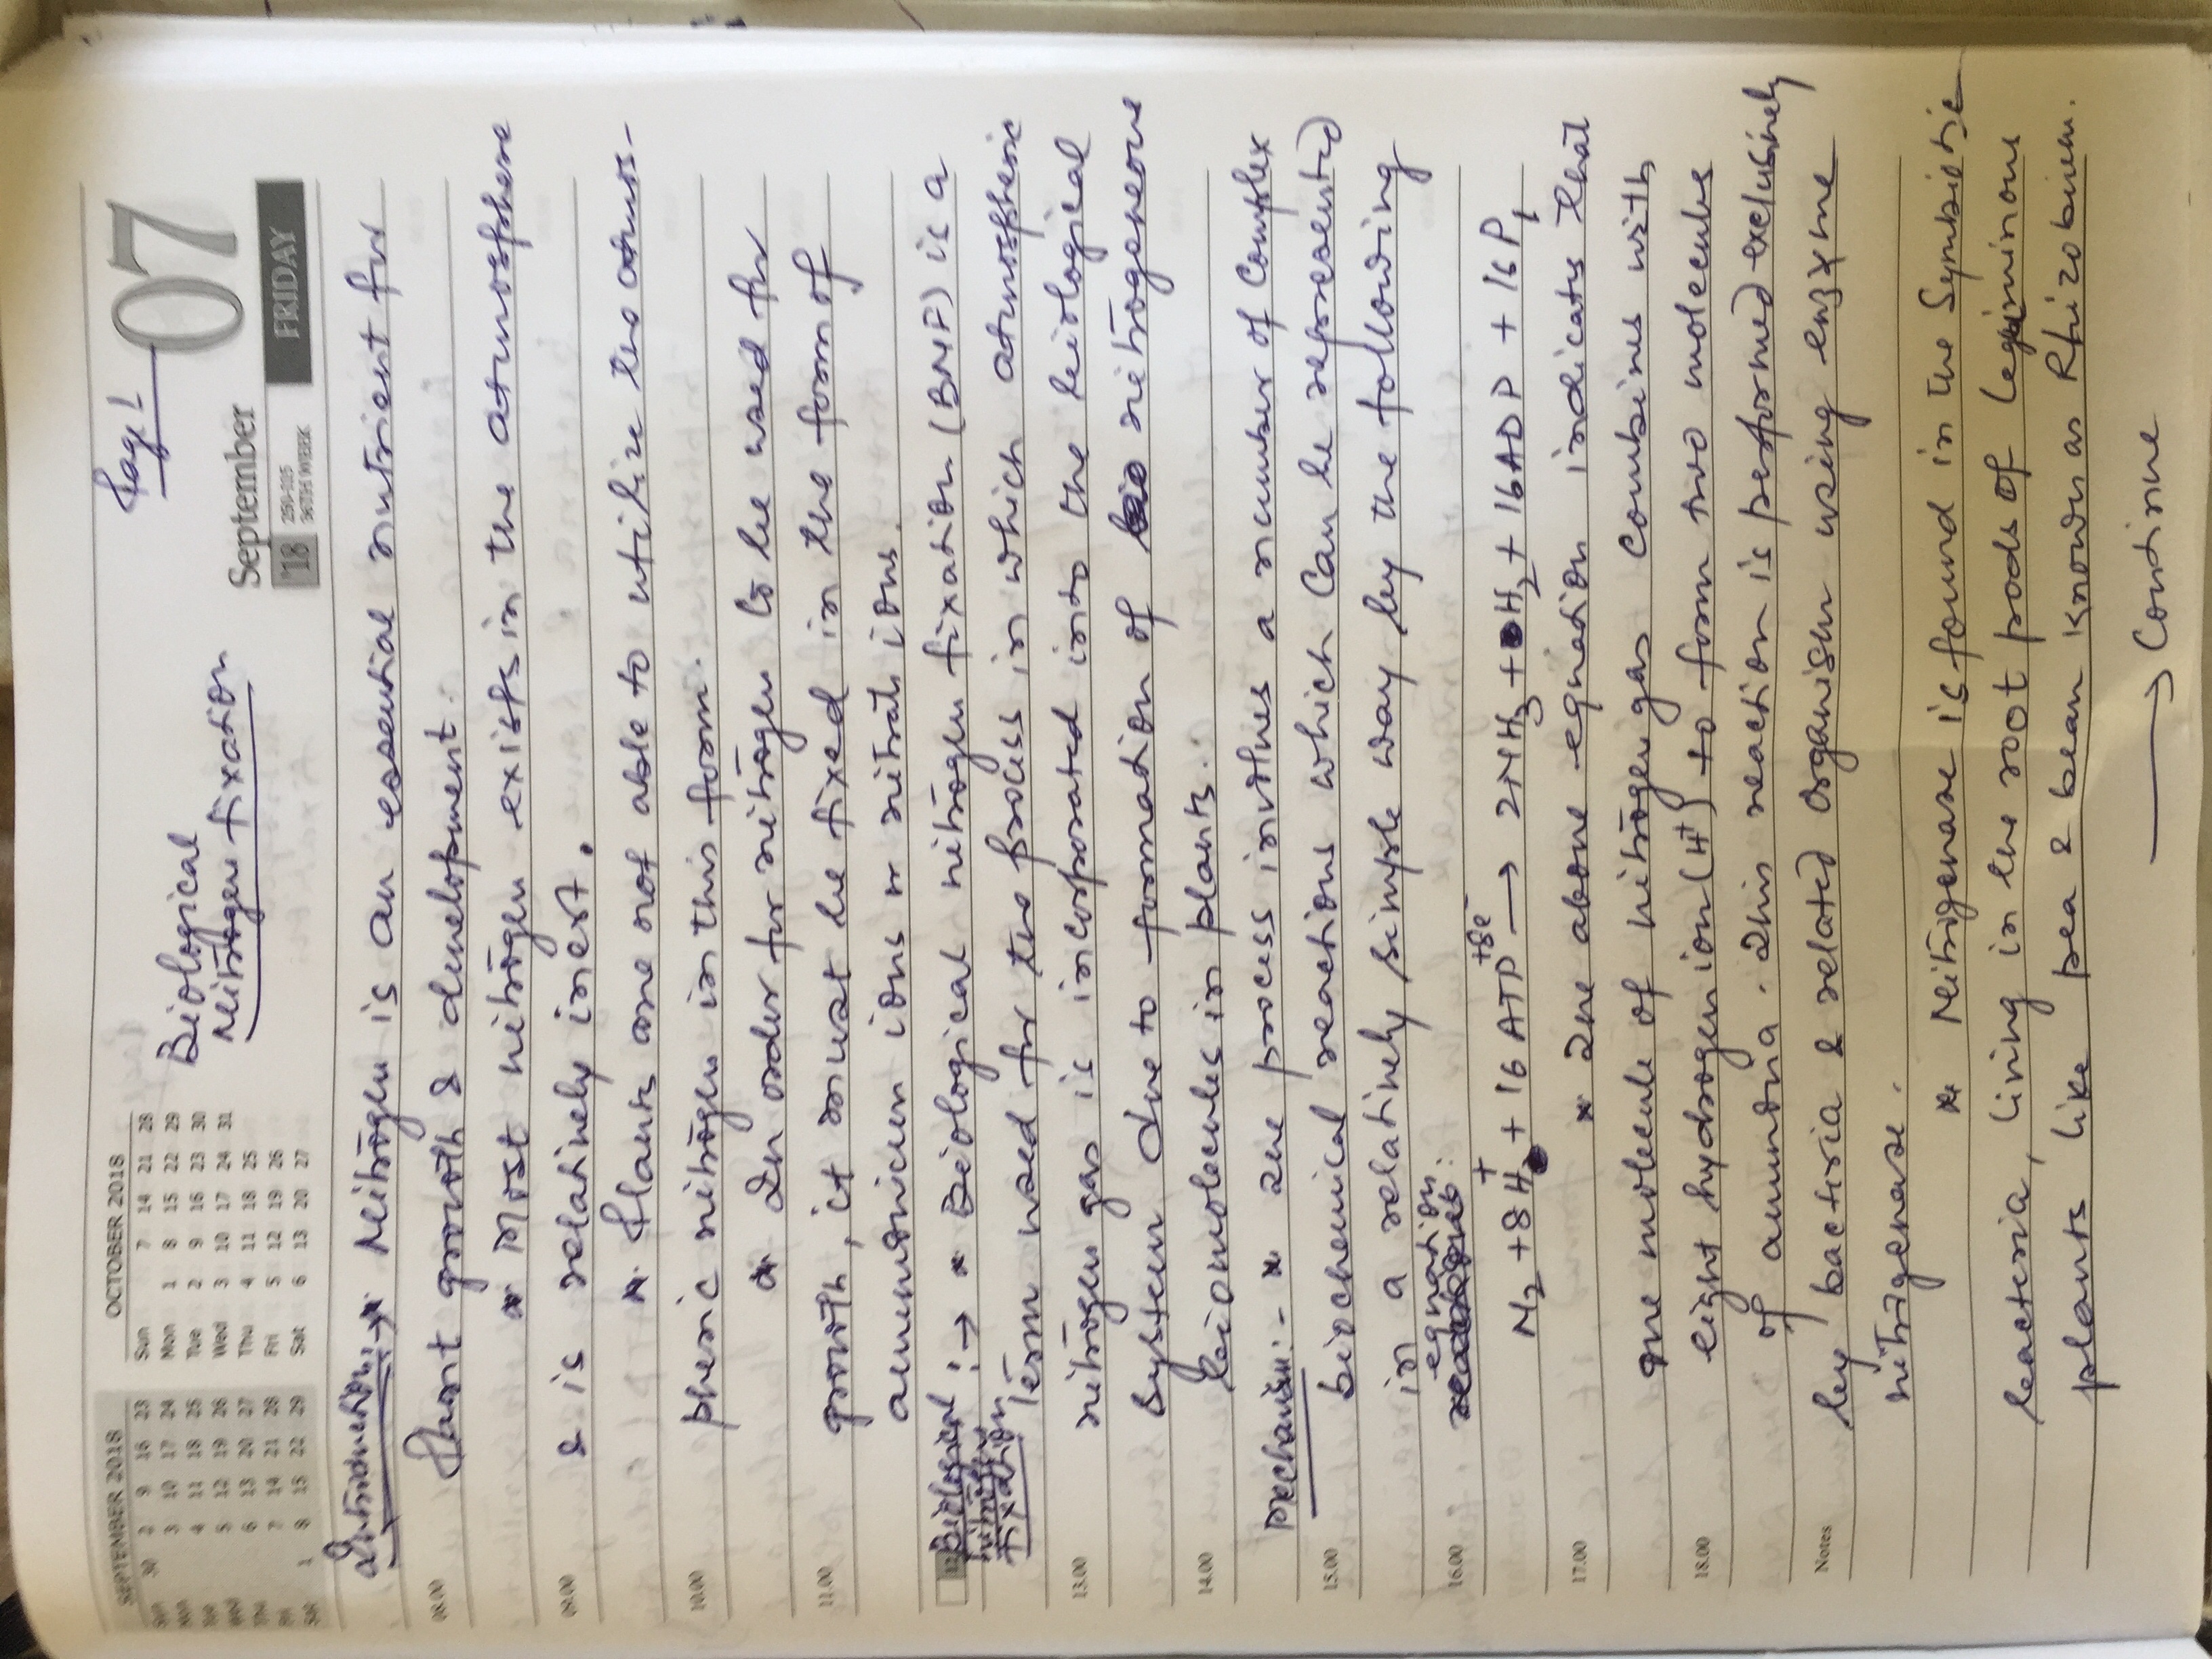 Page 1
SEPTEMBER 2018
Sun 30 2 9 16 23
Mon 3 10 17 24
Tue 4 11 18 25
Wed 5 12 19 26
Thu 6 13 20 27
Fri 7 14 21 28
Sat 1 8 15 22 29
OCTOBER 2018
Sun 7 14 21 28
Mon 1 8 15 22 29
Tue 2 9 16 23 30
Wed 3 10 17 24 31
Thu 4 11 18 25
Fri 5 12 19 26
Sat 6 13 20 27
Biological
Nitrogen fixation
September 07
'18 250-115 36TH WEEK FRIDAY
Introduction:→ * Nitrogen is an essential nutrient for
08.00 Plant growth & development.
* Most nitrogen exists in the atmosphere
09.00 & is relatively inert.
* Plants are not able to utilize this atmos-
10.00 pheric nitrogen in this form.
* In order for nitrogen to be used for
11.00 growth, it must be fixed in the form of
ammonium ions or nitrate ions.
12 Biological nitrogen fixation :→ * Biological nitrogen fixation (BNF) is a
term used for the process in which atmospheric
13.00 nitrogen gas is incorporated into the biological
System due to formation of nitrogenous
14.00 biomolecules in plants.
Mechanism:- * The process involves a number of Complex
15.00 biochemical reactions which Can be represented
in a relatively simple way by the following
16.00 equation:
N2 + 8H+ + 16 ATP +8e- → 2NH3 + H2 + 16ADP + 16Pi
17.00 * The above equation indicates that
one molecule of nitrogen gas Combines with
18.00 eight hydrogen ion (H+) to form two molecules
of ammonia. This reaction is performed exclusively
Notes by bacteria & related organism using enzyme
nitrigenase.
* Nitrigenase is found in the Symbiotic
bacteria, living in the root pods of leguminous
plants like pea & bean known as Rhizobium.
→ Continue